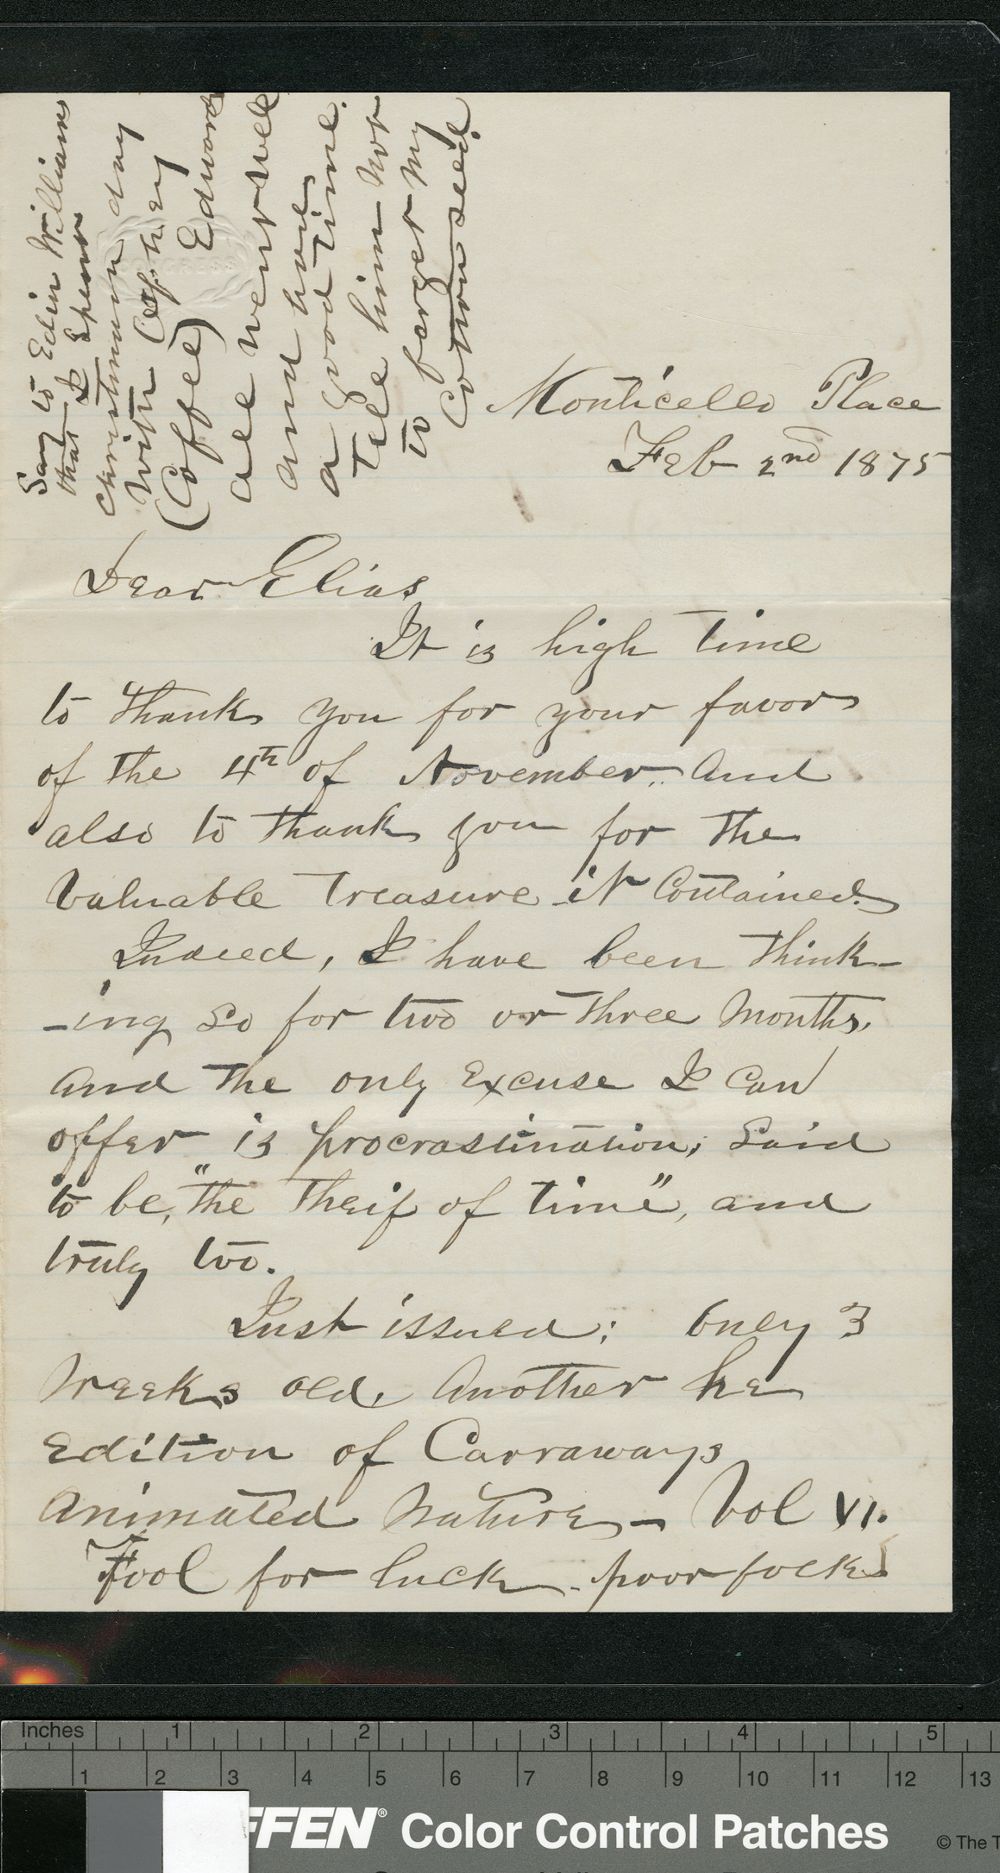 Say to Edin Williams
that I Spent
christmas day
with
(Coffee) Edward
all went well
and had
a good time.
Tell him not
to forget my
Cotton seed
Monticello Place
Feb 2nd 1875
Dear Elias
It is high time
to thank you for your favor
of the 4th of November. And
also to thank you for the
Valuable Treasure it Contained.
Indeed, I have been think-
-ing so for two or three Months,
And the only Excuse I Can
offer is procrastination; Said
to be, "the Theif of time", and
truly too.
Just issued; Only 3
Weeks old, Another he
Edition of Carraways
Animated Nature - Vol VI.
Fool for luck - poor focks
Inches 1 2 3 4 5
1 2 3 4 5 6 7 8 9 10 11 12 13
FFEN® Color Control Patches © The T